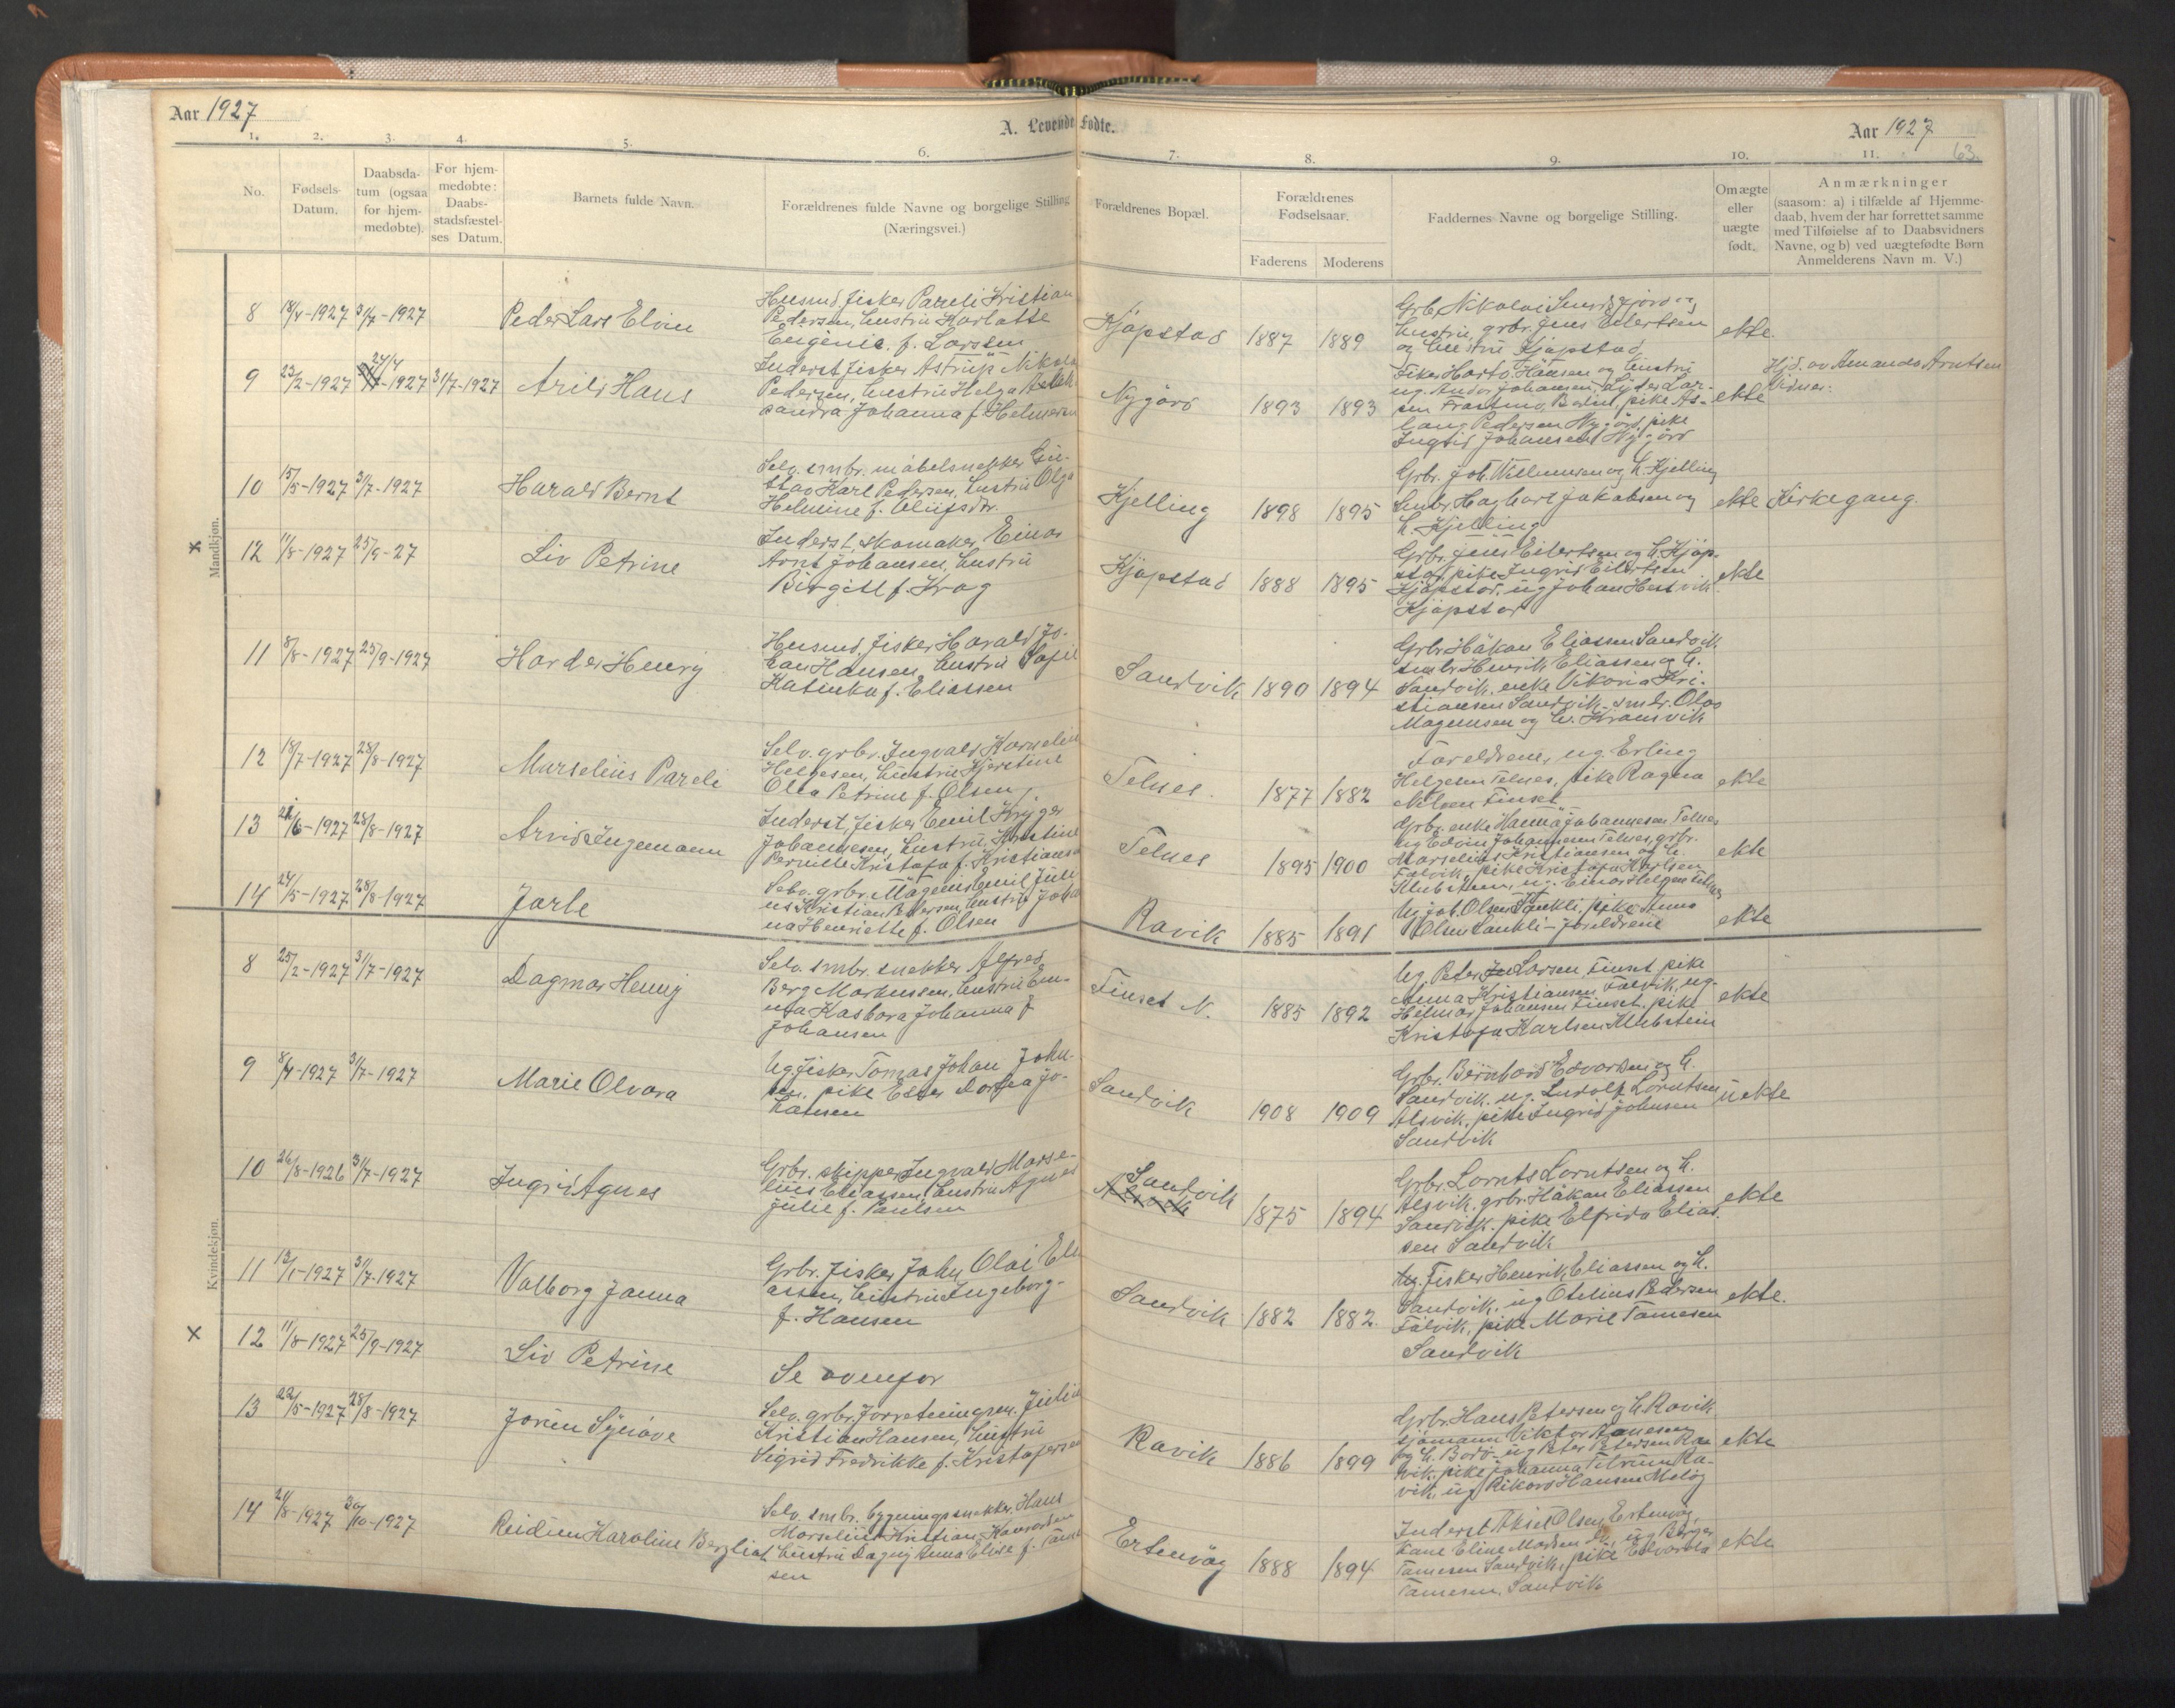 Aar 1927
A. Levende Fødte.
Aar 1927
63.
1. 2. 3. 4. 5. 6. 7. 8. 9. 10. 11.
No.
Fødsels-
Datum.
Daabsda-
tum (ogsaa
for hjem-
medøbte).
For hjem-
medøbte:
Daabs-
stadsfæstel-
ses Datum.
Barnets fulde Navn.
Forældrenes fulde Navne og borgelige Stilling
(Næringsvei.)
Forældrenes Bopæl.
Forældrenes
Fødselsaar.
Faderens Moderens
Faddernes Navne og borgelige Stilling.
Om ægte
eller
uægte
født.
Anmærkninger
(saasom: a) i tilfælde af Hjemme-
daab, hvem der har forrettet samme
med Tilføielse af to Daabsvidners
Navne, og b) ved uægtefødte Børn
Anmelderens Navn m. V.)
Mandkjøn.
8 18/4-1927 31/7-1927 Peder Lars Elvin
Husmd, fisker Pareli Kristian
Pedersen, hustru Karlotte
Eugenie f. Larssen
Kjøpstad 1887 1889
Grb. Nikolai
hustru, grbr. Jens Eilertsen
og hustru Kjøpstad
ekte
9 23/2-1927 24/4-1927 31/7-1927 Arild Hans
Inderst, fisker Astrup Nikolai
Pedersen, hustru Helga Alek-
sandra Johanna f. Helmersen
Nygård 1893 1893
Fisker Harto Hansen og hustru
ug. Andor Johansen,
pike As-
laug Pedersen Nygård, pike
Ingrid Johansen Nygård
ekte
Hjd. av Amanda Arntsen
10 15/5-1927 31/7-1927 Harald Bernt
Selv. smbr. møbelsnekker Gu-
stav Karl Pedersen, hustru Olga
Helmine f. Olufsdr.
Kjelling 1898 1895
Grbr. Joh. Villumsen og h. Kjelling
Smbr. Hagbart Jakobsen og
h. Kjelling
ekte Kirkegang.
x 12 11/8-1927 25/9-27 Liv Petrine
Inderst, skomaker Einar
Arnt Johansen, hustru
Birgitt f. Krog
Kjøpstad 1888 1895
Grbr. Jens Eilertsen og h. Kjøp-
stad, pike Ingrid Eilertsen
Kjøpstad, ug Johan Hestvik
Kjøpstad
ekte
11 8/8-1927 25/9-1927 Harder Henry
Husmd, fisker Harald Jo-
han Hansen, hustru Sofie
Katinka f. Eliassen
Sandvik 1890 1894
Grbr. Håkon Eliassen Sandvik
smbr. Henrik Eliassen og h.
Sandvik, enke Vikoria Kri-
stiansen Sandvik - smbr. Olav
Magnussen og h. Kransvik
12 18/7-1927 28/8-1927 Marselius Pareli
Selv. grbr. Ingvald Kornelius
Helgesen, hustru Kjerstine
Olea Petrine f. Olsen
Telnes. 1877 1882
Foreldrene, ug. Erling
Helgesen Telnes, pike Ragna
Nilsen Finset
ekte
13 21/6-1927 28/8-1927 Arvid Ingemann
Inderst, fisker Emil Kryger
Johannesen, hustru, Kristine
Pernille Kristofa f. Kristiansen
Telnes 1895 1900
Grbr. enke Hanna Johannesen Telnes
ug Edvin Johannesen Telnes, grbr.
Marselius Kristiansen og h.
Følvik, pike Kristofa Karlsen
Klubstein, ug. Einar Helgesen Telnes
ekte
14 24/5-1927 28/8-1927 Jarle
Selv. grbr. Magnus Emil Juli-
us Kristian Pedersen, hustru Johan-
na Henriette f. Olsen
Ravik 1885 1891
Ug. Joh. Olsen, pike Anna
Olsen - foreldrene
ekte
Kvindekjøn.
8 25/2-1927 31/7-1927 Dagmar Henny
Selv. smbr. snekker Alfred
Berg Markussen, hustru Em-
ma Kasbora Johanna f.
Johansen
Finset N. 1885 1892
Ug. Peter Larsen, Finset, pike
Anna Kristiansen Følvik, ug.
Hilmar Johansen Finset, pike
Kristofa Karlsen Klubstein
ekte
9 8/4-1927 31/7-1927 Marie Olvara
Ug. fisker Tomas Johan John-
sen, pike Ester Dortea Jo-
hansen
Sandvik 1908 1909
Grbr. Bernhard Edvardsen og h.
Sandvik, ug. Ludolf Lorntsen
Alsvik, pike Ingrid Johnsen
Sandvik
uekte
10 26/8-1926 31/7-1927 Ingrid Agnes
Grbr. skipper Ingvald Marse-
lius Eliassen, hustru Agnes
Julie f. Paulsen
Sandvik
Alsvik
1875 1894
Grbr. Lornts Lorntsen og h.
Alsvik, grbr. Håkan Eliassen
Sandvik, pike Elfrida Elias-
sen Sandvik
ekte
11 12/1-1927 31/7-1927 Valborg Janna
Grbr. fisker John Olai Eli-
assen, hustru Ingeborg
f. Hansen
Sandvik 1882 1882.
Ug. Fisker Henrik Eliassen og h.
Sandvik, ug Otelius Pedersen
Følvik, pike Marie Tomesen
Sandvik
ekte.
x 12 11/8-1927 25/9-1927 Liv Petrine
Se ovenfor
13 22/5-1927 28/8-1927 Jorun Synøve
Selv. grbr. forretningsm. Julius
Kristian Hansen, hustru
Sigrid Fredrikke f. Kristofersen
Ravik 1886 1899
Grbr. Hans Petersen og h. Ravik
sjømann Viktor
og h. Bodø, ug Peter Petersen Ra-
vik, pike Johanna Ra-
vik, ug Rikard Hansen Meløy
ekte
14 21/8-1927 30/10-1927 Reidun Karoline Bergliot
Selv. smbr. bygningssnekker Hans
Marselius Kristian
hustru Dagny Anna Elise f. Tome-
sen
Ertenvåg 1888 1894
Inderst Aksel Olsen, Ertenvåg,
Kane Eline Do, ug Birger
Tomesen Sandvik, pike Edvarda
Tomesen, Sandvik
ekte